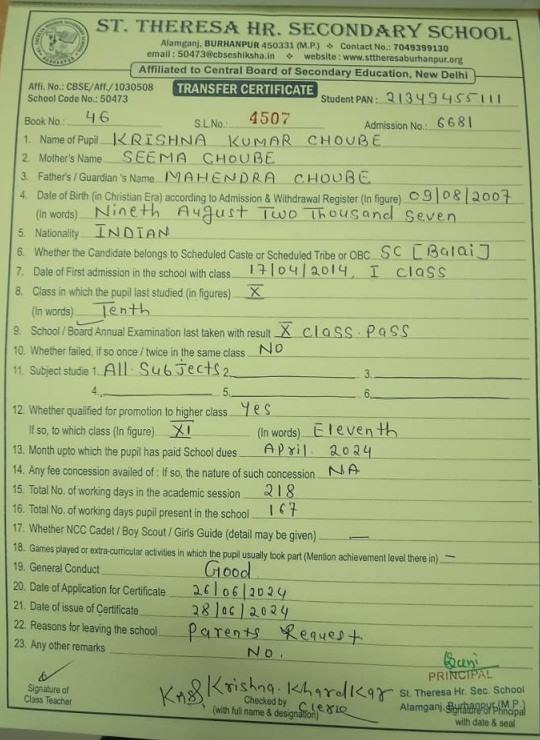 ST. THERESA HR. SECONDARY SCHOOL
Alamganj, BURHANPUR 450331 (M.P.) ❖ Contact No.: 7049399130
email : 50473@cbseshiksha.in ❖ website : www.sttheresaburhanpur.org
Affiliated to Central Board of Secondary Education, New Delhi
Affi. No.: CBSE/Aff./1030508
School Code No.: 50473
TRANSFER CERTIFICATE
Student PAN : 21349455111
Book No.: 46 S.L.No.: 4507 Admission No.: 6681
1. Name of Pupil KRISHNA KUMAR CHOUBE
2. Mother's Name SEEMA CHOUBE
3. Father's / Guardian 's Name MAHENDRA CHOUBE
4. Date of Birth (in Christian Era) according to Admission & Withdrawal Register (In figure) 09/08/2007
(In words) Nineth August Two Thousand Seven
5. Nationality INDIAN
6. Whether the Candidate belongs to Scheduled Caste or Scheduled Tribe or OBC SC [Balai]
7. Date of First admission in the school with class 17/04/2014, I class
8. Class in which the pupil last studied (in figures) X
(In words) Tenth
9. School / Board Annual Examination last taken with result X class. Pass
10. Whether failed, if so once / twice in the same class NO
11. Subject studie 1. All Subjects 2. 3.
4. 5. 6.
12. Whether qualified for promotion to higher class Yes
If so, to which class (In figure) XI (In words) Eleventh
13. Month upto which the pupil has paid School dues April. 2024
14. Any fee concession availed of : If so, the nature of such concession NA
15. Total No. of working days in the academic session 218
16. Total No. of working days pupil present in the school 167
17. Whether NCC Cadet / Boy Scout / Girls Guide (detail may be given) —
18. Games played or extra-curricular activities in which the pupil usually took part (Mention achievement level there in) —
19. General Conduct Good
20. Date of Application for Certificate 26/06/2024
21. Date of issue of Certificate 28/06/2024
22. Reasons for leaving the school Parents Request
23. Any other remarks NO.
PRINCIPAL
Krishna. Kharadkar
St. Theresa Hr. Sec. School
Signature of
Class Teacher
Checked by
(with full name & designation)
Clerk
Alamganj, Burhanpur (M.P.)
Signature of Principal
with date & seal